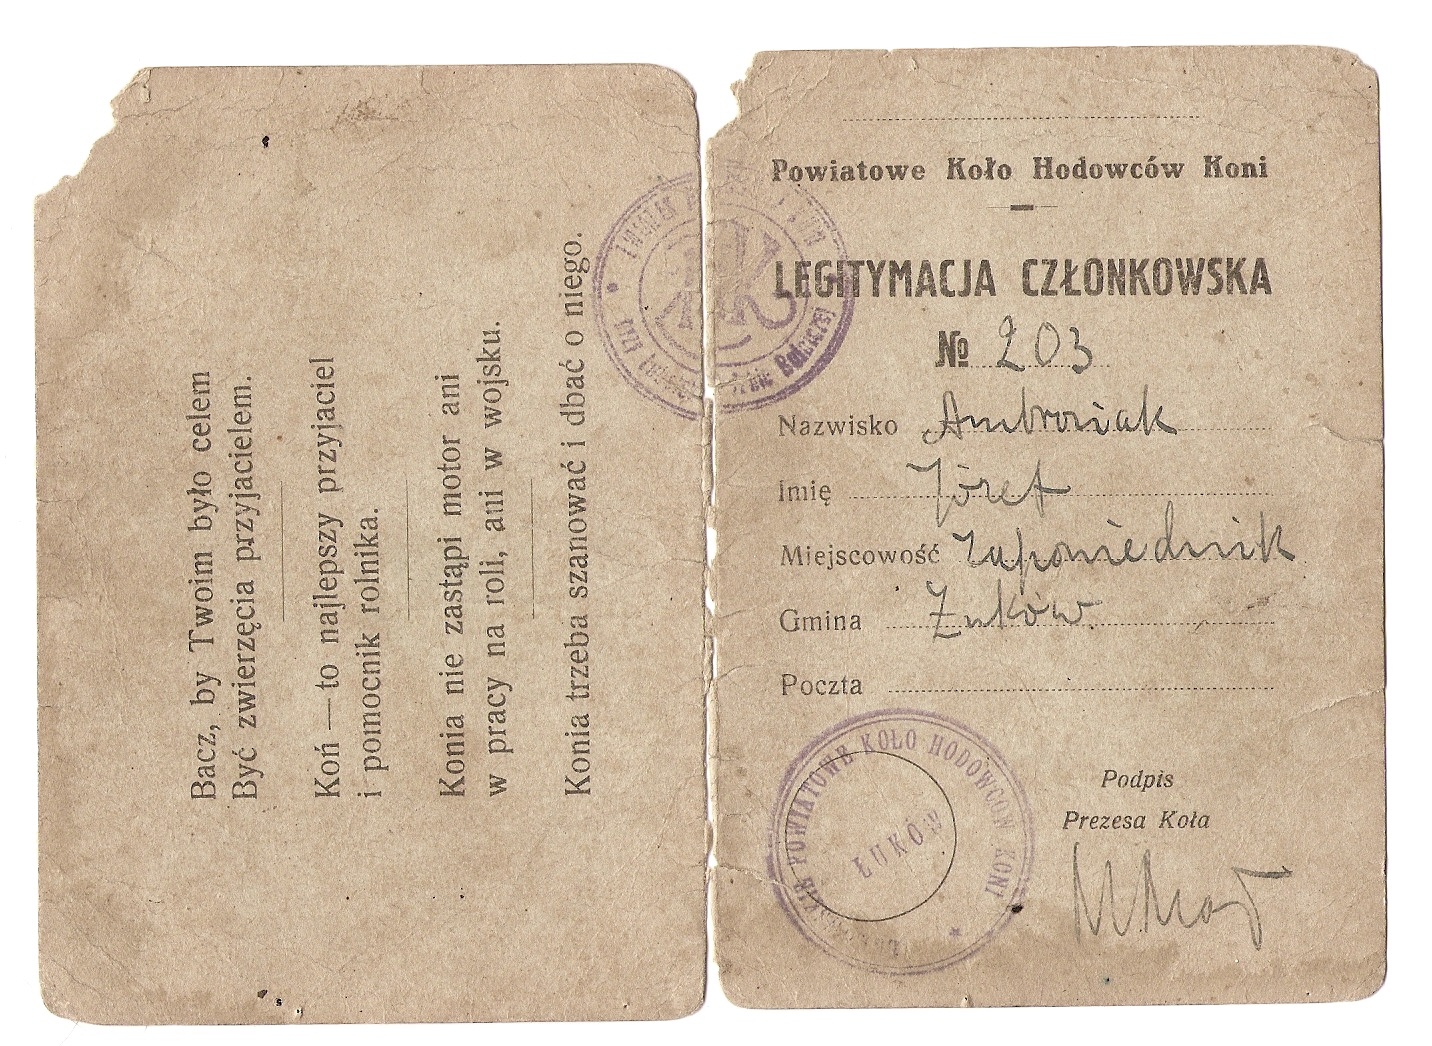 Bacz, by Twoim było celem
Być zwierzęcia przyjacielem.
Koń — to najlepszy przyjaciel
i pomocnik rolnika.
Konia nie zastąpi motor ani
w pracy na roli, ani w wojsku.
Konia trzeba szanować i dbać o niego.
Powiatowe Koło Hodowców Koni
LEGITYMACJA CZŁONKOWSKA
№ 203
Nazwisko Ambroziak
Imię Józef
Miejscowość Zapowiednik
Gmina Łuków
Poczta
POWIATOWE KOŁO HODOWCÓW KONI
ŁUKÓW
Podpis
Prezesa Koła